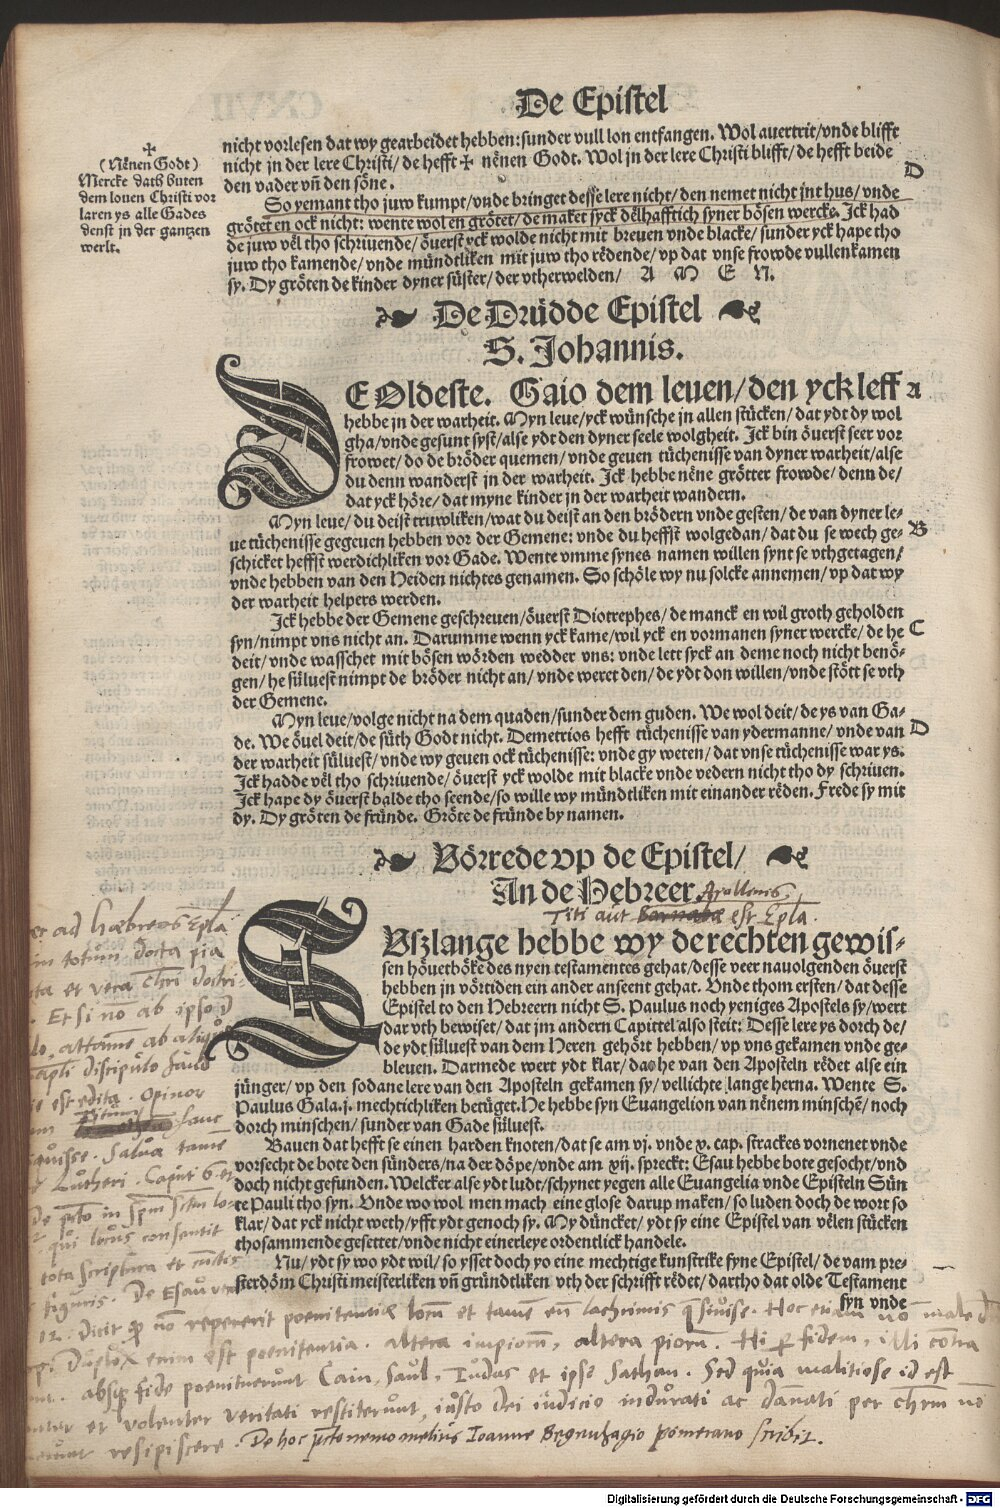 De Epistel
nicht vorlesen dat wy gearbeidet hebben: sunder vull lon entfangen. Wol auertrit/ vnde blifft
nicht jn der lere Christi/ de hefft ✢ nënen Godt. Wol jn der lere Christi blifft/ de hefft beide
den vader vn̄ den söne.
✢
(Nënen Godt)
Mercke dath buten
dem louen Christi vor
laren ys alle Gades
denst jn der gantzen
werlt.
D
So yemant tho juw kumpt/ vnde bringet desse lere nicht/ den nemet nicht jnt hus/ vnde
grötet en ock nicht: wente wol en grötet/ de maket syck dëlhafftich syner bösen wercke. Jck had
de juw vël tho schriuende/ öuerst yck wolde nicht mit breuen vnde blacke/ sunder yck hape tho
juw tho kamende/ vnde mündtliken mit juw tho rëdende/ vp dat vnse frowde vullenkamen
sy. Dy gröten de kinder dyner süster/ der vtherwelden/ A M E N.
De Drüdde Epistel
S. Johannis.
DE Oldeste. Gaio dem leuen/ den yck leff A
hebbe jn der warheit. Myn leue/ yck wünsche jn allen stücken/ dat ydt dy wol
gha/ vnde gesunt syst/ alse ydt den dyner seele wolgheit. Jck bin öuerst seer vor
frowet/ do de bröder quemen/ vnde geuen tüchenisse van dyner warheit/ alse
du denn wanderst jn der warheit. Jck hebbe nëne grötter frowde/ denn de/
dat yck höre/ dat myne kinder jn der warheit wandern.
Myn leue/ du deist truwliken/ wat du deist an den brödern vnde gesten/ de van dyner le⸗
ue tüchenisse gegeuen hebben vor der Gemene: vnde du heffst wolgedan/ dat du se wech ge⸗ B
schicket heffst werdichliken vor Gade. Wente vmme synes namen willen synt se vthgetagen/
vnde hebben van den Heiden nichtes genamen. So schöle wy nu solcke annemen/ vp dat wy
der warheit helpers werden.
Jck hebbe der Gemene geschreuen/ öuerst Diotrephes/ de manck en wil groth geholden
syn/ nimpt vns nicht an. Darumme wenn yck kame/ wil yck en vormanen syner wercke/ de he C
deit/ vnde wasschet mit bösen wörden wedder vns: vnde lett syck an deme noch nicht benö⸗
gen/ he süluest nimpt de bröder nicht an/ vnde weret den/ de ydt don willen/ vnde stött se vth
der Gemene.
Myn leue/ volge nicht na dem quaden/ sunder dem guden. We wol deit/ de ys van Ga⸗
de. We öuel deit/ de süth Godt nicht. Demetrios hefft tüchenisse van ydermanne/ vnde van D
der warheit süluest/ vnde wy geuen ock tüchenisse: vnde gy weten/ dat vnse tüchenisse war ys.
Jck hadde vël tho schriuende/ öuerst yck wolde mit blacke vnde vedern nicht tho dy schriuen.
Jck hape dy öuerst balde tho seende/ so wille wy mündtliken mit einander rëden. Frede sy mit
dy. Dy gröten de fründe. Gröte de fründe by namen.
Vörrede vp de Epistel/
An de Hebreer Apollonis
Titi aut Barnabæ est Epla.
BYszlange hebbe wy de rechten gewis⸗
sen höuetböke des nyen testamentes gehat/ desse veer nauolgenden öuerst
hebben jn vörtiden ein ander anseent gehat. Vnde thom ersten/ dat desse
Epistel to den Hebreern nicht S. Paulus noch yeniges Apostels sy/ wert
dar vth bewiset/ dat jm andern Capittel also steit: Desse lere ys dorch de/
de ydt süluest van dem Heren gehört hebben/ vp vns gekamen vnde ge⸗
bleuen. Darmede wert ydt klar/ dat he van den Aposteln rëdet alse ein
jünger/ vp den sodane lere van den Aposteln gekamen sy/ vellichte lange herna. Wente S.
Paulus Gala. j. mechtichliken betüget. He hebbe syn Euangelion van nënem minschē/ noch
dorch minschen/ sunder van Gade süluest.
Bauen dat hefft se einen harden knoten/ dat se am vj. vnde x. cap. strackes vornenet vnde
vorsecht de bote den sünders/ na der döpe/ vnde am xij. spreckt: Esau hebbe bote gesocht/ vnd
doch nicht gefunden. Welcker alse ydt ludt/ schynet yegen alle Euangelia vnde Episteln Sün
te Pauli tho syn. Vnde wo wol men mach eine glose darup maken/ so luden doch de wort so
klar/ dat yck nicht weth/ yfft ydt genoch sy. My düncket/ ydt sy eine Epistel van vëlen stücken
thosammende gesettet/ vnde nicht einerleye ordentlick handele.
Nu/ ydt sy wo ydt wil/ so ysset doch yo eine mechtige kunstrike fyne Epistel/ de vam pre⸗
sterdöm Christi meisterliken vn̄ gründtliken vth der schrifft rëdet/ dartho dat olde Testament
syn vnde
ad Hæbreos Epla
in totum docta pia
et vera Chri doctri-
. Etsi nō ab ipso
attamē ab aliquo
apli discipulo
est edita. Opinor
Titum hanc
. Salua tamē
Lutheri. Caput 6 et
in
qui locus consentit
tota scriptura et
figuris. De Esau
12. dicit nō repererit poenitentiæ locū et tamē eū lachrimis q̄siuisse. Hoc nō male
Duplex enim est poenitentia. altera impiorū, altera piorū. Hi fidem, illi contra
absq̧ fide poenituerunt Cain, Saul, Iudas et ipse Sathan. Sed quia malitiose id est
et volenter veritati restiterunt, iusto Dei iudicio indurati ac dānati per chrm̄ nō
resipiscere. De hoc nemo melius Ioanne Bugenhagio pomerano scribit.
Digitalisierung gefördert durch die Deutsche Forschungsgemeinschaft - DFG